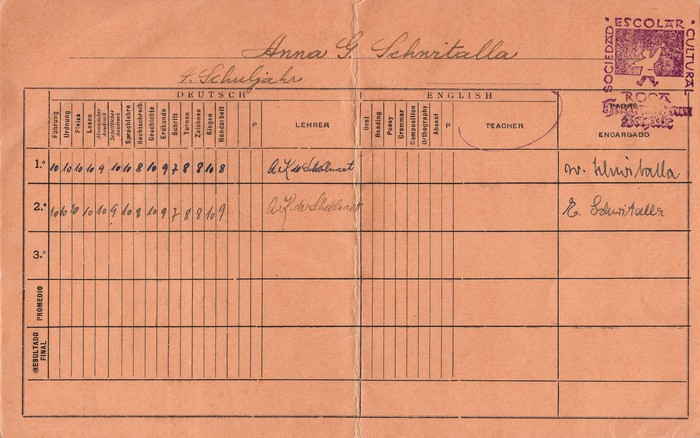 Anna G. Schwitalla
4. Schuljahr
SOCIEDAD ESCOLAR CULTURAL
ROCA
DEUTSCH
ENGLISH
Führung Ordnung Fleiss Lesen Mündlicher Ausdruck Schriftlicher Ausdruck Sprachlehre Rechtschreib. Geschichte Erdkunde Schrift Turnen Zeichnen Singen Handarbeit P LEHRER Oral Reading Poesy Grammar Composition Orthography Absent P TEACHER ENCARGADO
1.º 10 10 10 10 9 10 10 8 10 9 7 8 8 10 8 W. Schwitalla
2.º 10 10 10 10 10 9 10 8 10 9 7 8 8 10 9 E. Schwitalla
3.º
PROMEDIO
RESULTADO FINAL